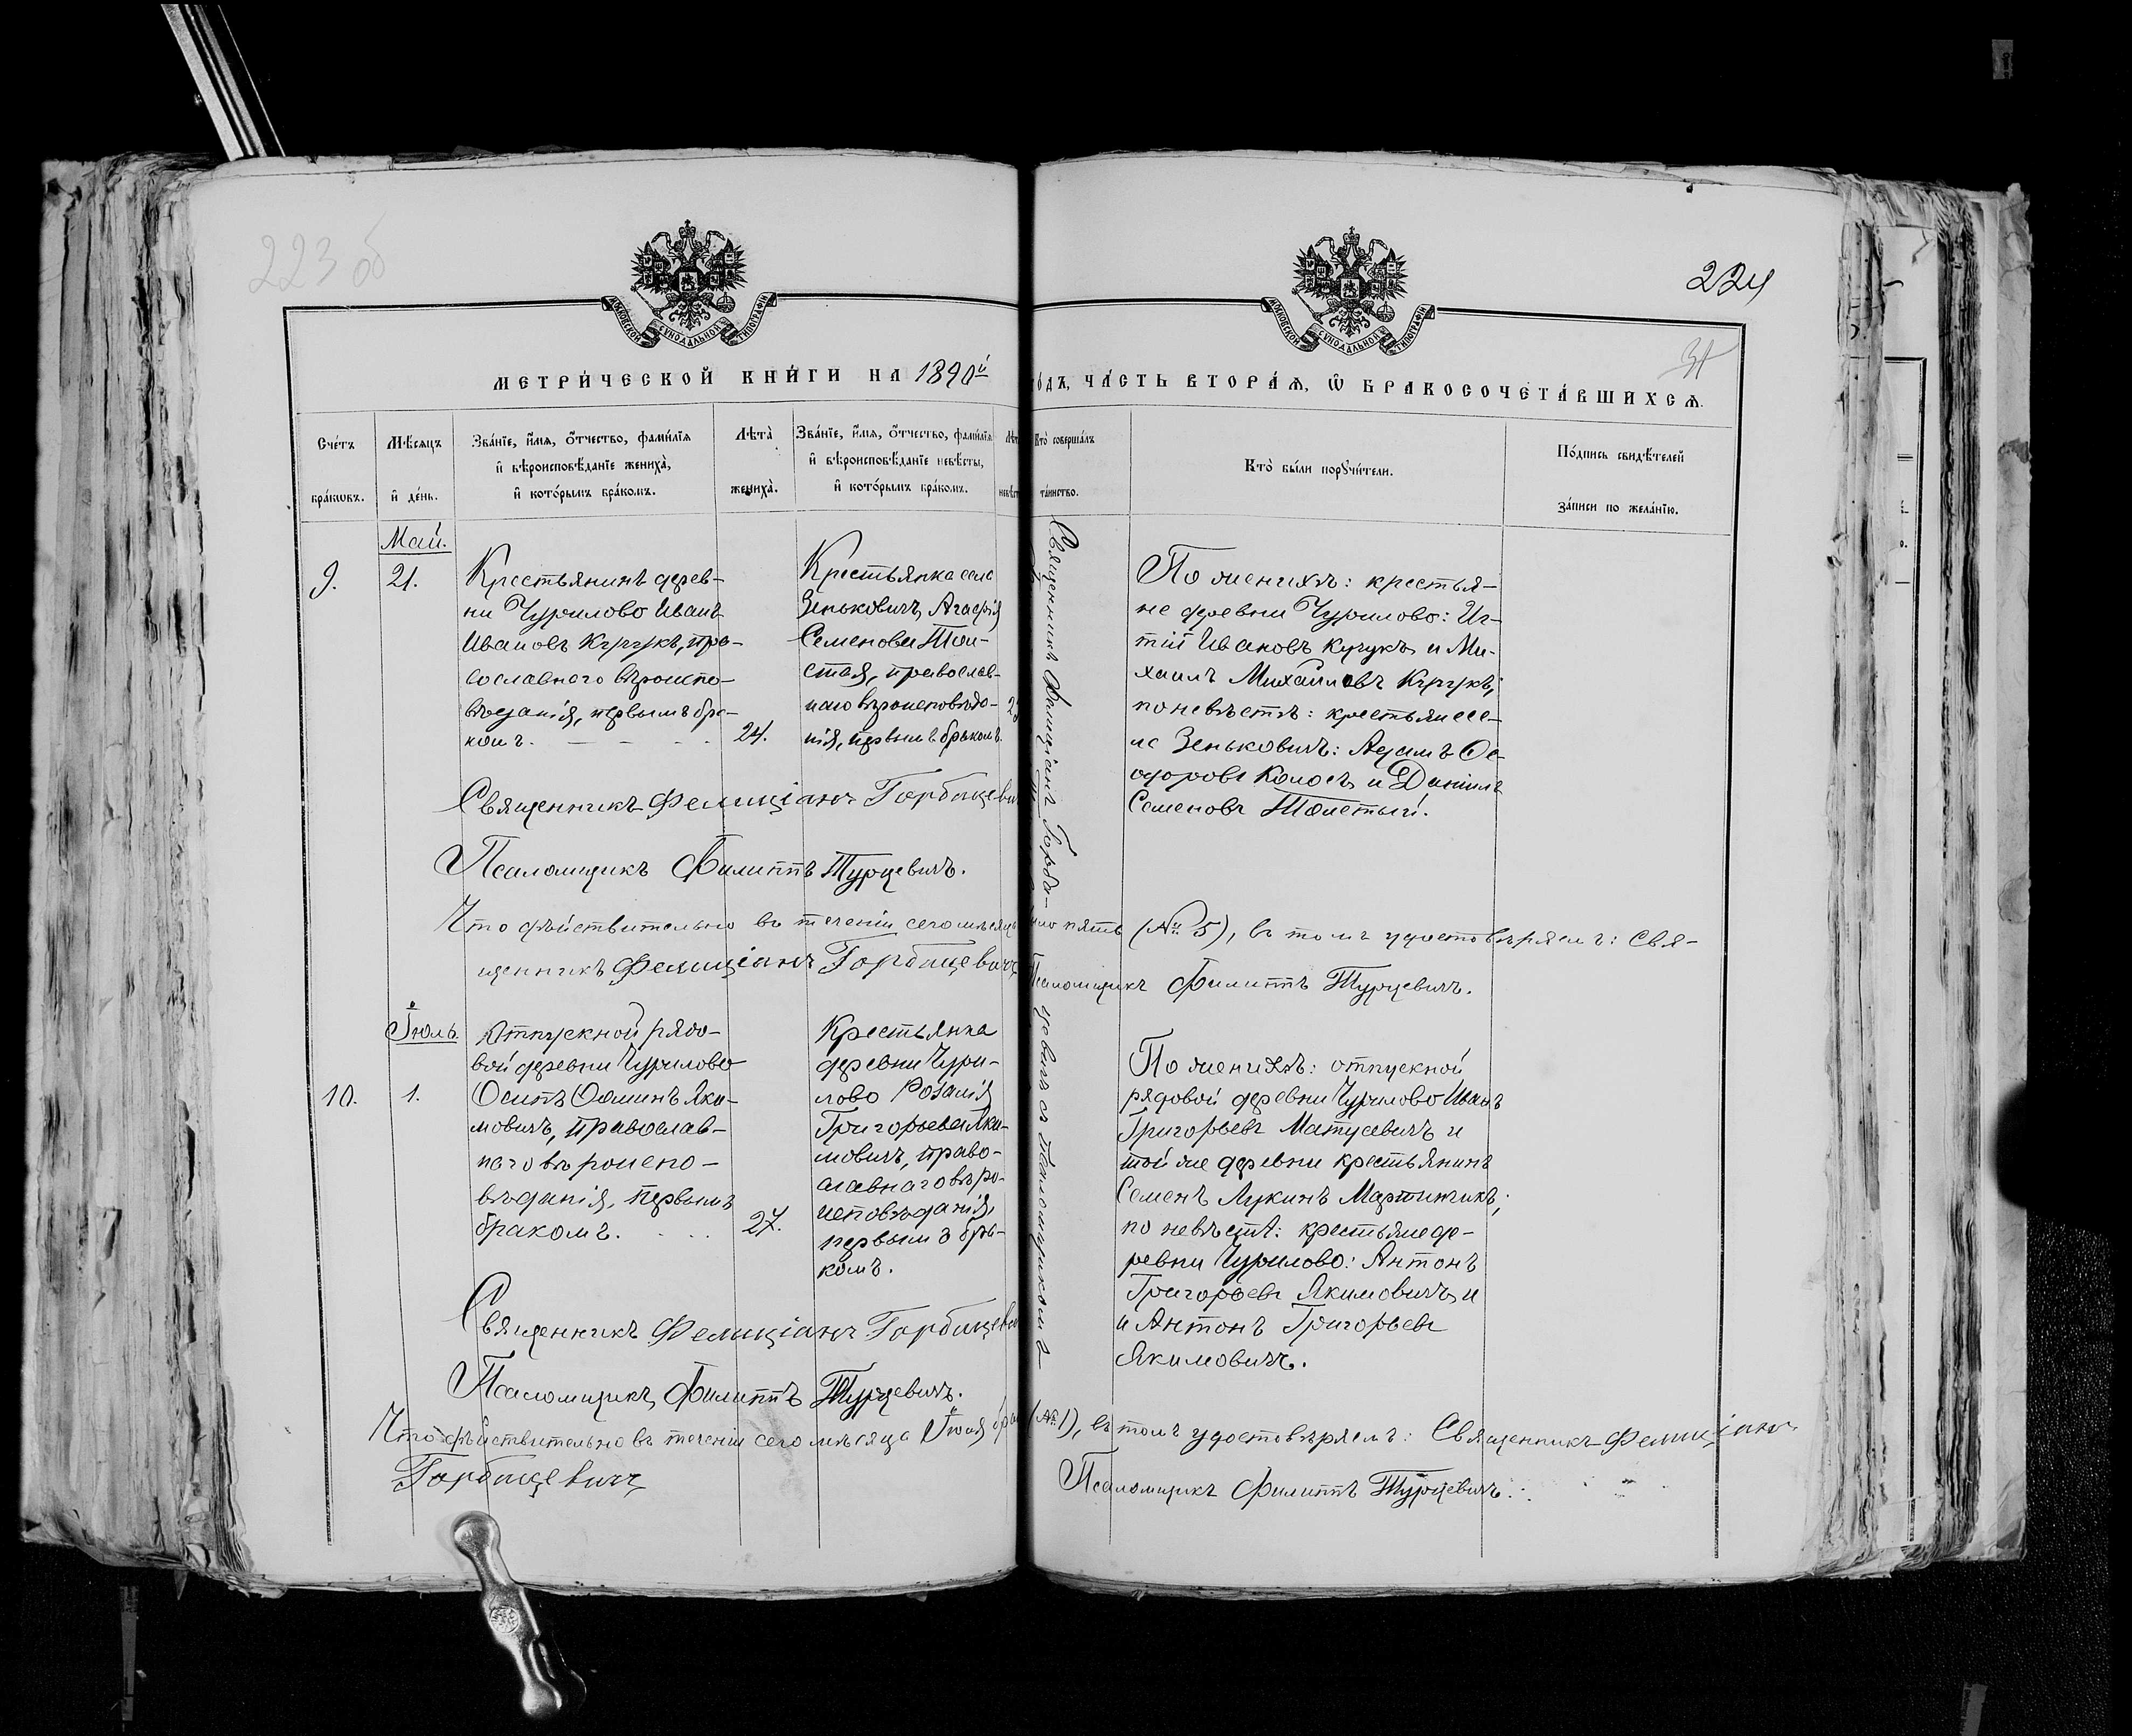 223 об
224
31
МОСКОВСКОЙ СѴНОДАЛЬНОЙ ТИПОГРАФІИ
МОСКОВСКОЙ СѴНОДАЛЬНОЙ ТИПОГРАФІИ
МЕТРИ́ЧЕСКОЙ КНИ́ГИ НА 1890й
го́дъ, ЧА́СТЬ ВТОРА́Ѧ, Ѽ БРАКОСОЧЕТА́ВШИХСѦ.
Сче́тъ бра́кѡвъ.
Мѣ́сяцъ и҆ де́нь.
Зва́нїе, и҆́мѧ, ѻ҆́тчество, фами́лїѧ
и҆ вѣроисповѣ́данїе жениха̀,
и҆ кото́рымъ бра́комъ.
Лѣта̀ жениха̀.
Зва́нїе, и҆́мѧ, ѻ҆́тчество, фами́лїѧ
и҆ вѣроисповѣ́данїе невѣ́сты,
и҆ кото́рымъ бра́комъ.
Кто̀ соверша́лъ
та́инство.
Кто̀ бы́ли порꙋчи́тели.
По́дпись свидѣ́телей
за́писи по жела́нїю.
Май.
9.
21.
Крестьянинъ дерев-
ни Чурилово Иванъ
Ивановъ Кучукъ, пра-
вославнаго вѣроиспо-
вѣданія, первымъ бра-
комъ.
24.
Крестьянка села
Зеньковичъ, Агафія
Семенова Тол-
стая, православ-
наго вѣроисповѣда-
нія, первымъ бракомъ.
Священникъ Фелиціанъ Горба-
цевичъ съ Псаломщикомъ
По женихѣ: крестья-
не деревни Чурилово: Иг-
тій Ивановъ Кучукъ и Ми-
хаилъ Михайловъ Кучукъ;
по невѣстѣ: крестьяне се-
ла Зеньковичъ: Адамъ Ѳе-
одоровъ Колосъ и Даніилъ
Семеновъ Толстый.
Священникъ Фелиціанъ Горбацеви
Псаломщикъ Филиппъ Турцевичъ.
Что дѣйствительно въ теченіи сего мѣсяца
пять (№ 5), въ томъ удостовѣряемъ: Свя-
щенникъ Фелиціанъ Горбацевичъ
Псаломщикъ Филиппъ Турцевичъ.
Іюль.
10.
1.
Отпускной рядо-
вой деревни Чурилово
Осипъ Ѳоминъ Яки-
мовичъ, православ-
наго вѣроиспо-
вѣданія, первымъ
бракомъ.
27.
Крестьянка
деревни Чури-
лово Розалія
Григорьева Яки-
мовичъ, право-
славнаго вѣро-
исповѣданія,
первымъ бра-
комъ.
По женихѣ: отпускной
рядовой деревни Чурилово Иванъ
Григорьевъ Матусевичъ и
той же деревни крестьянинъ
Семенъ Лукинъ Мартинчикъ;
по невѣстѣ: крестьяне де-
ревни Чурилово: Антонъ
Григорьевъ Якимовичъ и
и Антонъ Григорьевъ
Якимовичъ.
Священникъ Фелиціанъ Горбацеви
Псаломщикъ Филиппъ Турцевичъ.
Что дѣйствительно въ теченіи сего мѣсяца Іюля
(№ 1), въ томъ удостовѣряемъ: Священникъ Фелиціанъ
Горбацевичъ
Псаломщикъ Филиппъ Турцевичъ.